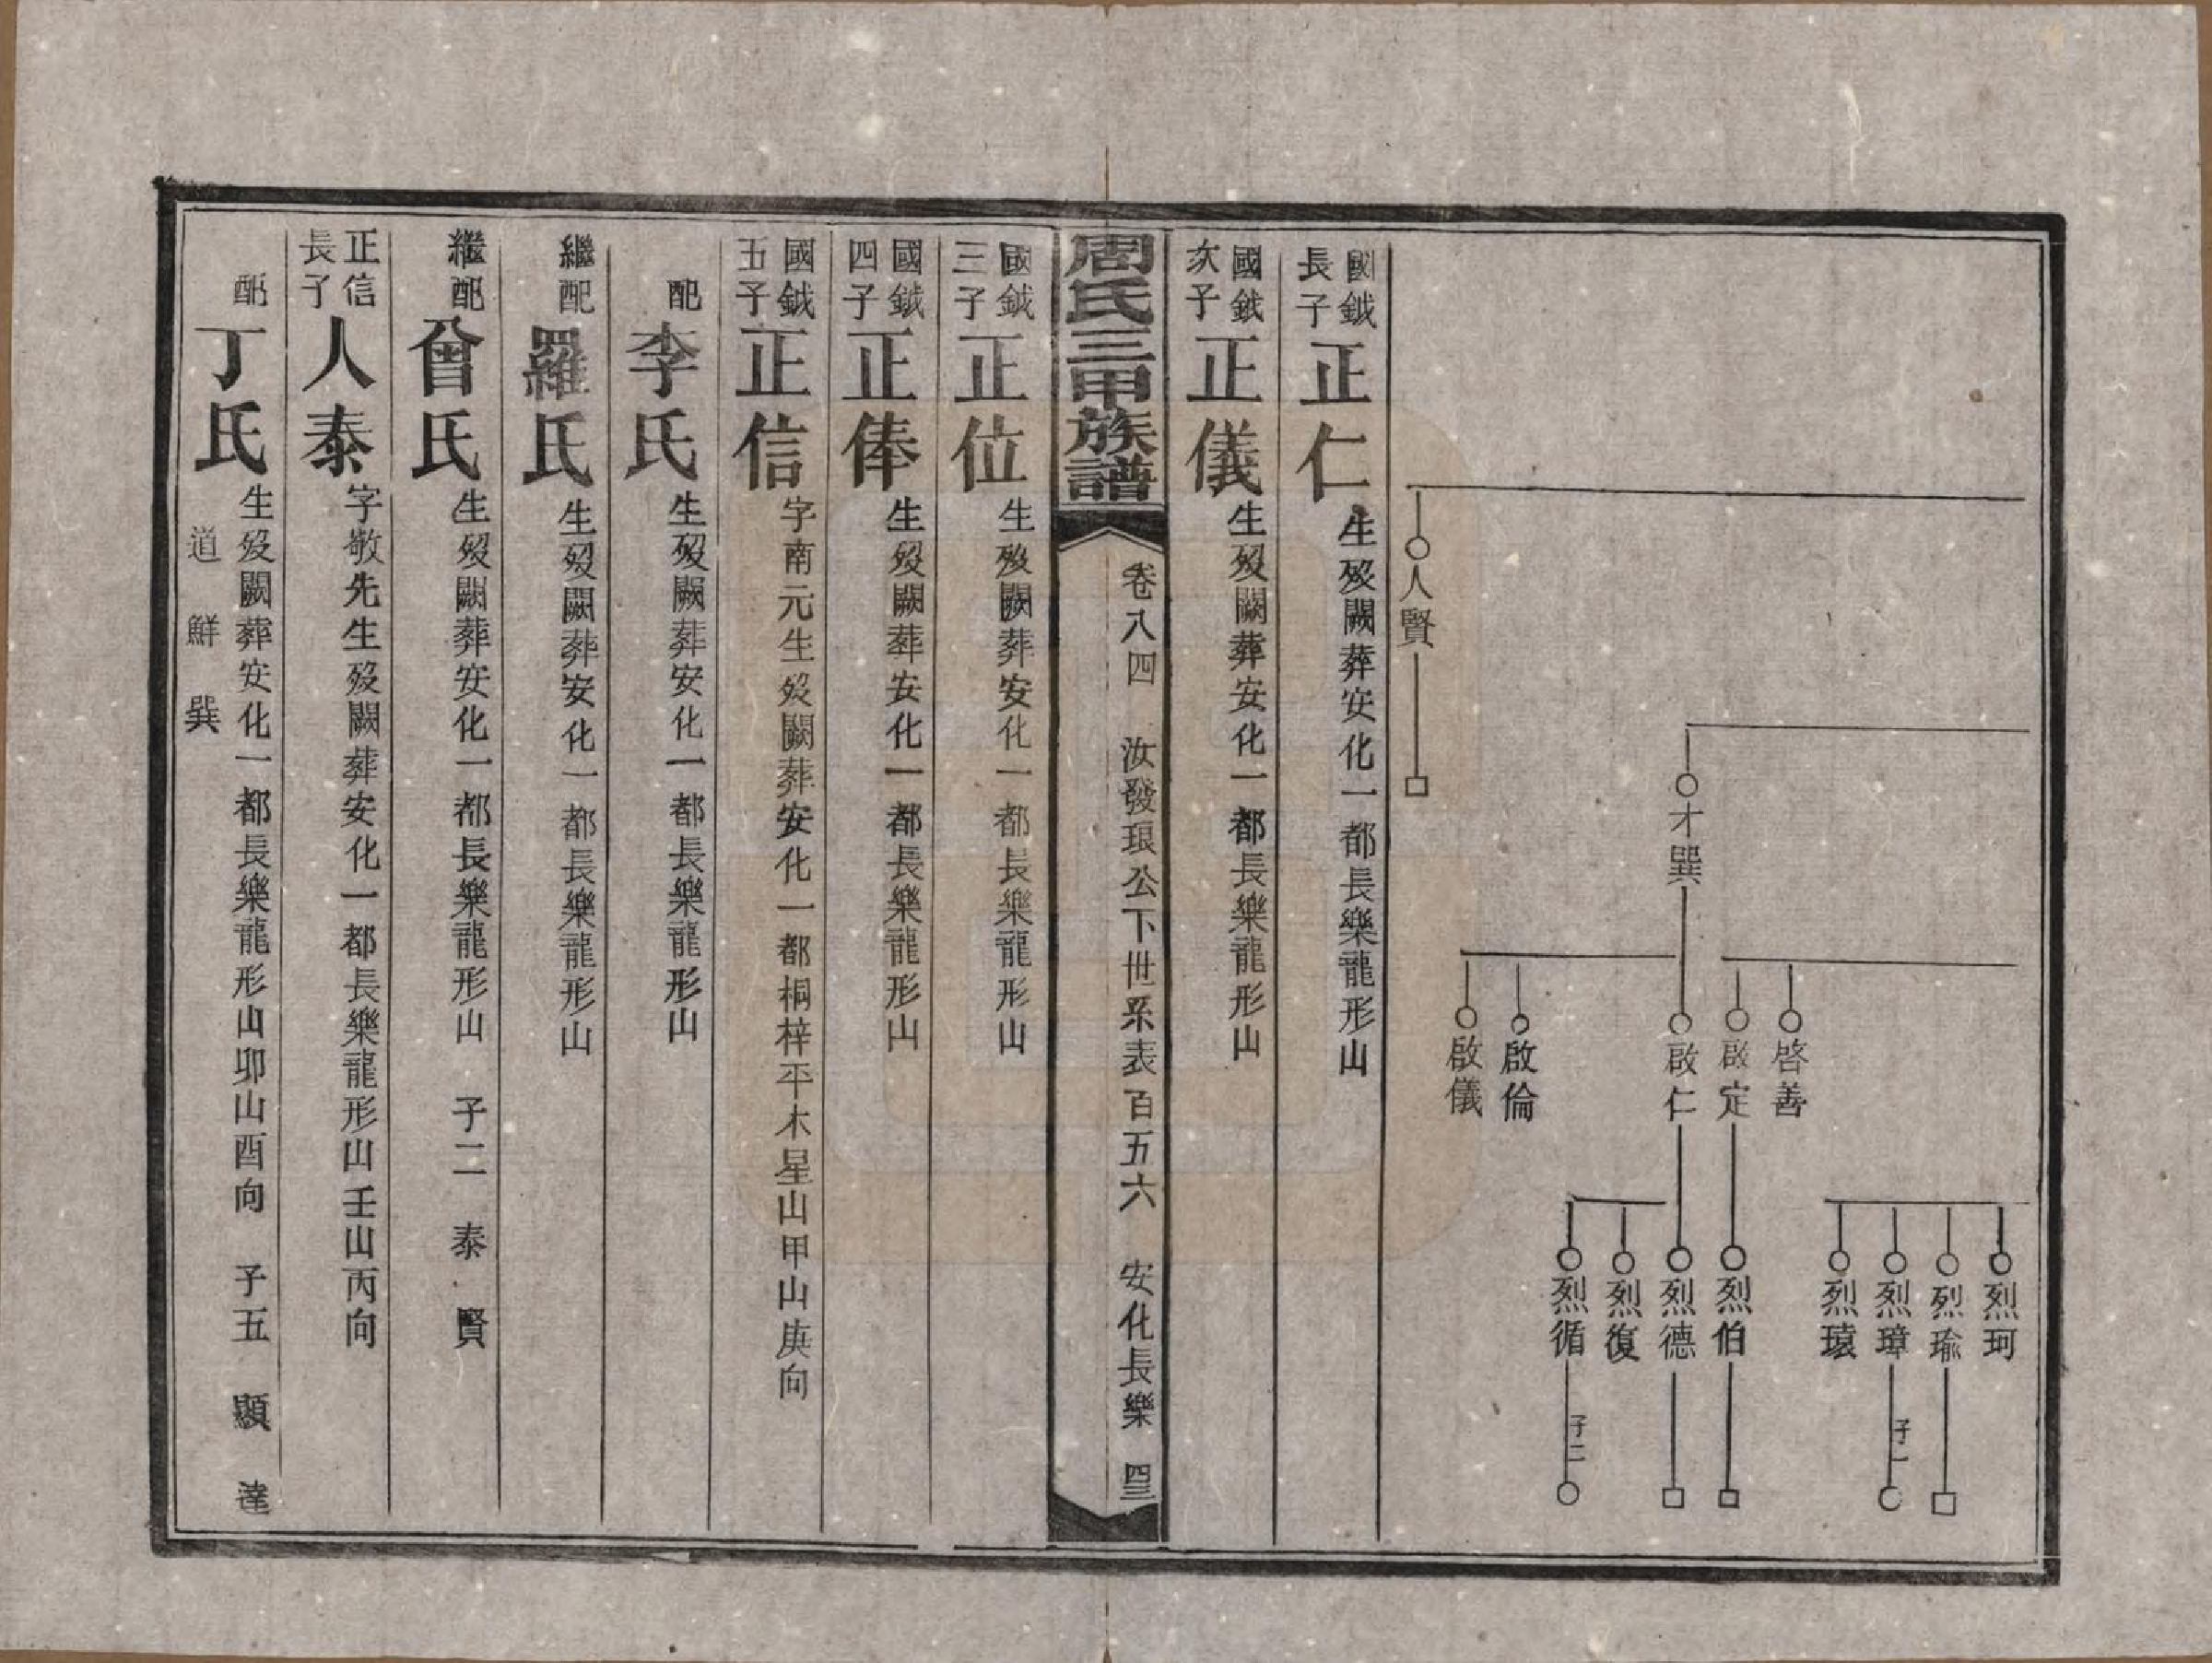 人賢
才巽
啓善
啟定
啟仁
啟倫
啟儀
烈珂
烈瑜
烈璋
子一
烈瑗
烈伯
烈德
烈復
烈循
子二
國鉞長子 正仁 生歿闕葬安化一都長樂龍形山
國鉞次子 正儀 生歿闕葬安化一都長樂龍形山
周氏三甲族譜 卷八四 汝發琅公下世系表百五六 安化長樂 四三
國鉞三子 正位 生歿闕葬安化一都長樂龍形山
國鉞四子 正俸 生歿闕葬安化一都長樂龍形山
國鉞五子 正信 字南元生歿闕葬安化一都桐梓平木星山甲山庚向
配 李氏 生歿闕葬安化一都長樂龍形山
繼配 羅氏 生歿闕葬安化一都長樂龍形山
繼配 曾氏 生歿闕葬安化一都長樂龍形山 子二 泰 賢
正信長子 人泰 字敬先生歿闕葬安化一都長樂龍形山壬山丙向
配 丁氏 生歿闕葬安化一都長樂龍形山卯山酉向 子五 顯 達
道 鮮 巽